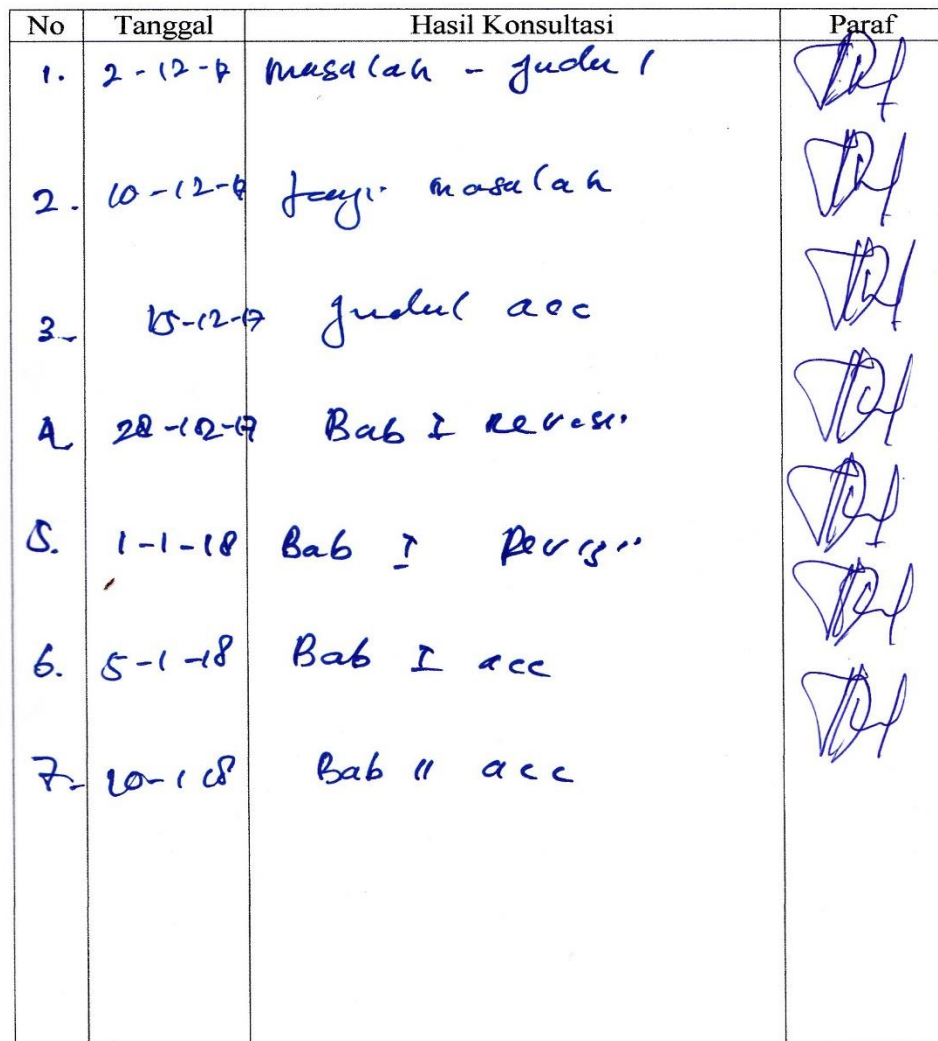 No Tanggal Hasil Konsultasi Paraf
1. 2-12-17 masalah - judul
2. 10-12-17 masalah
3. 15-12-17 judul acc
4. 28-12-17 Bab I revisi
5. 1-1-18 Bab I Revisi
6. 5-1-18 Bab I acc
7. 10-1-18 Bab II acc